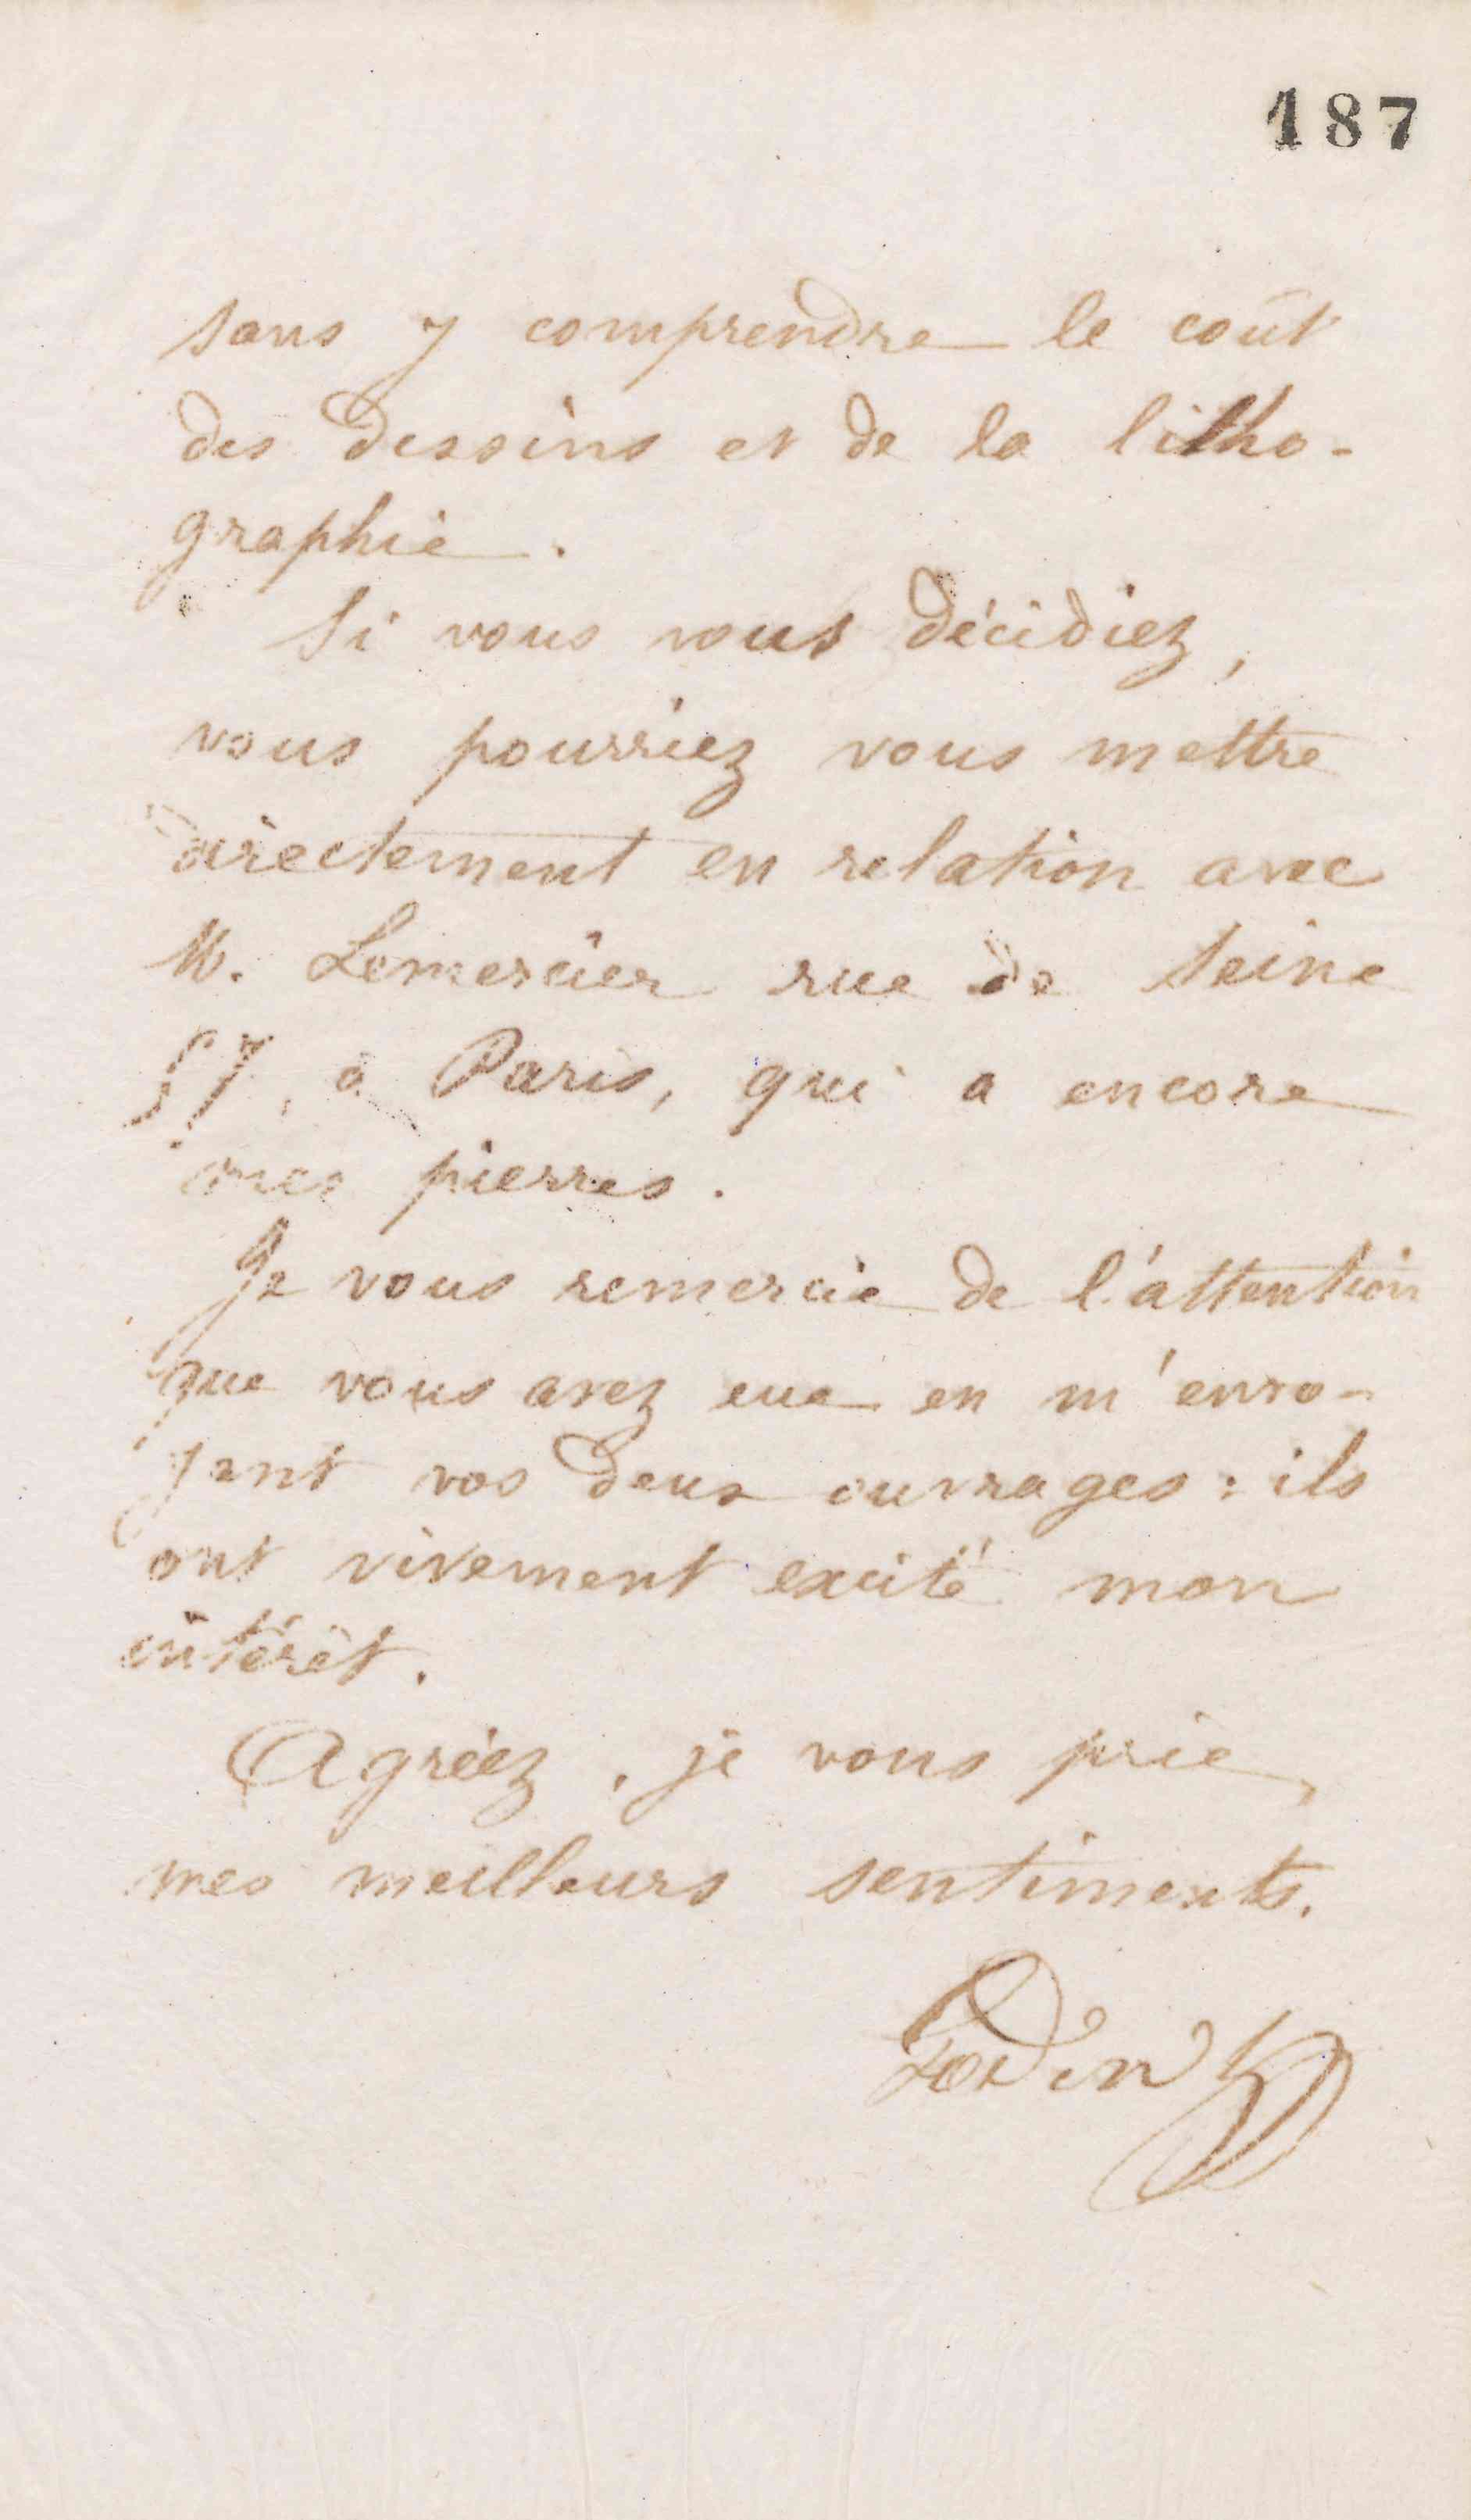 187
sans y comprendre le coût
des dessins et de la litho-
graphie.
Si vous vous décidiez,
vous pourriez vous mettre
directement en relation avec
M. Lemercier rue de Seine
57, à Paris, qui a encore
mes pierres.
Je vous remercie de l'attention
que vous avez eue en m'envo-
yant vos deux ouvrages : ils
ont vivement excité mon
intérêt.
Agréez, je vous prie,
mes meilleurs sentiments.
Godin